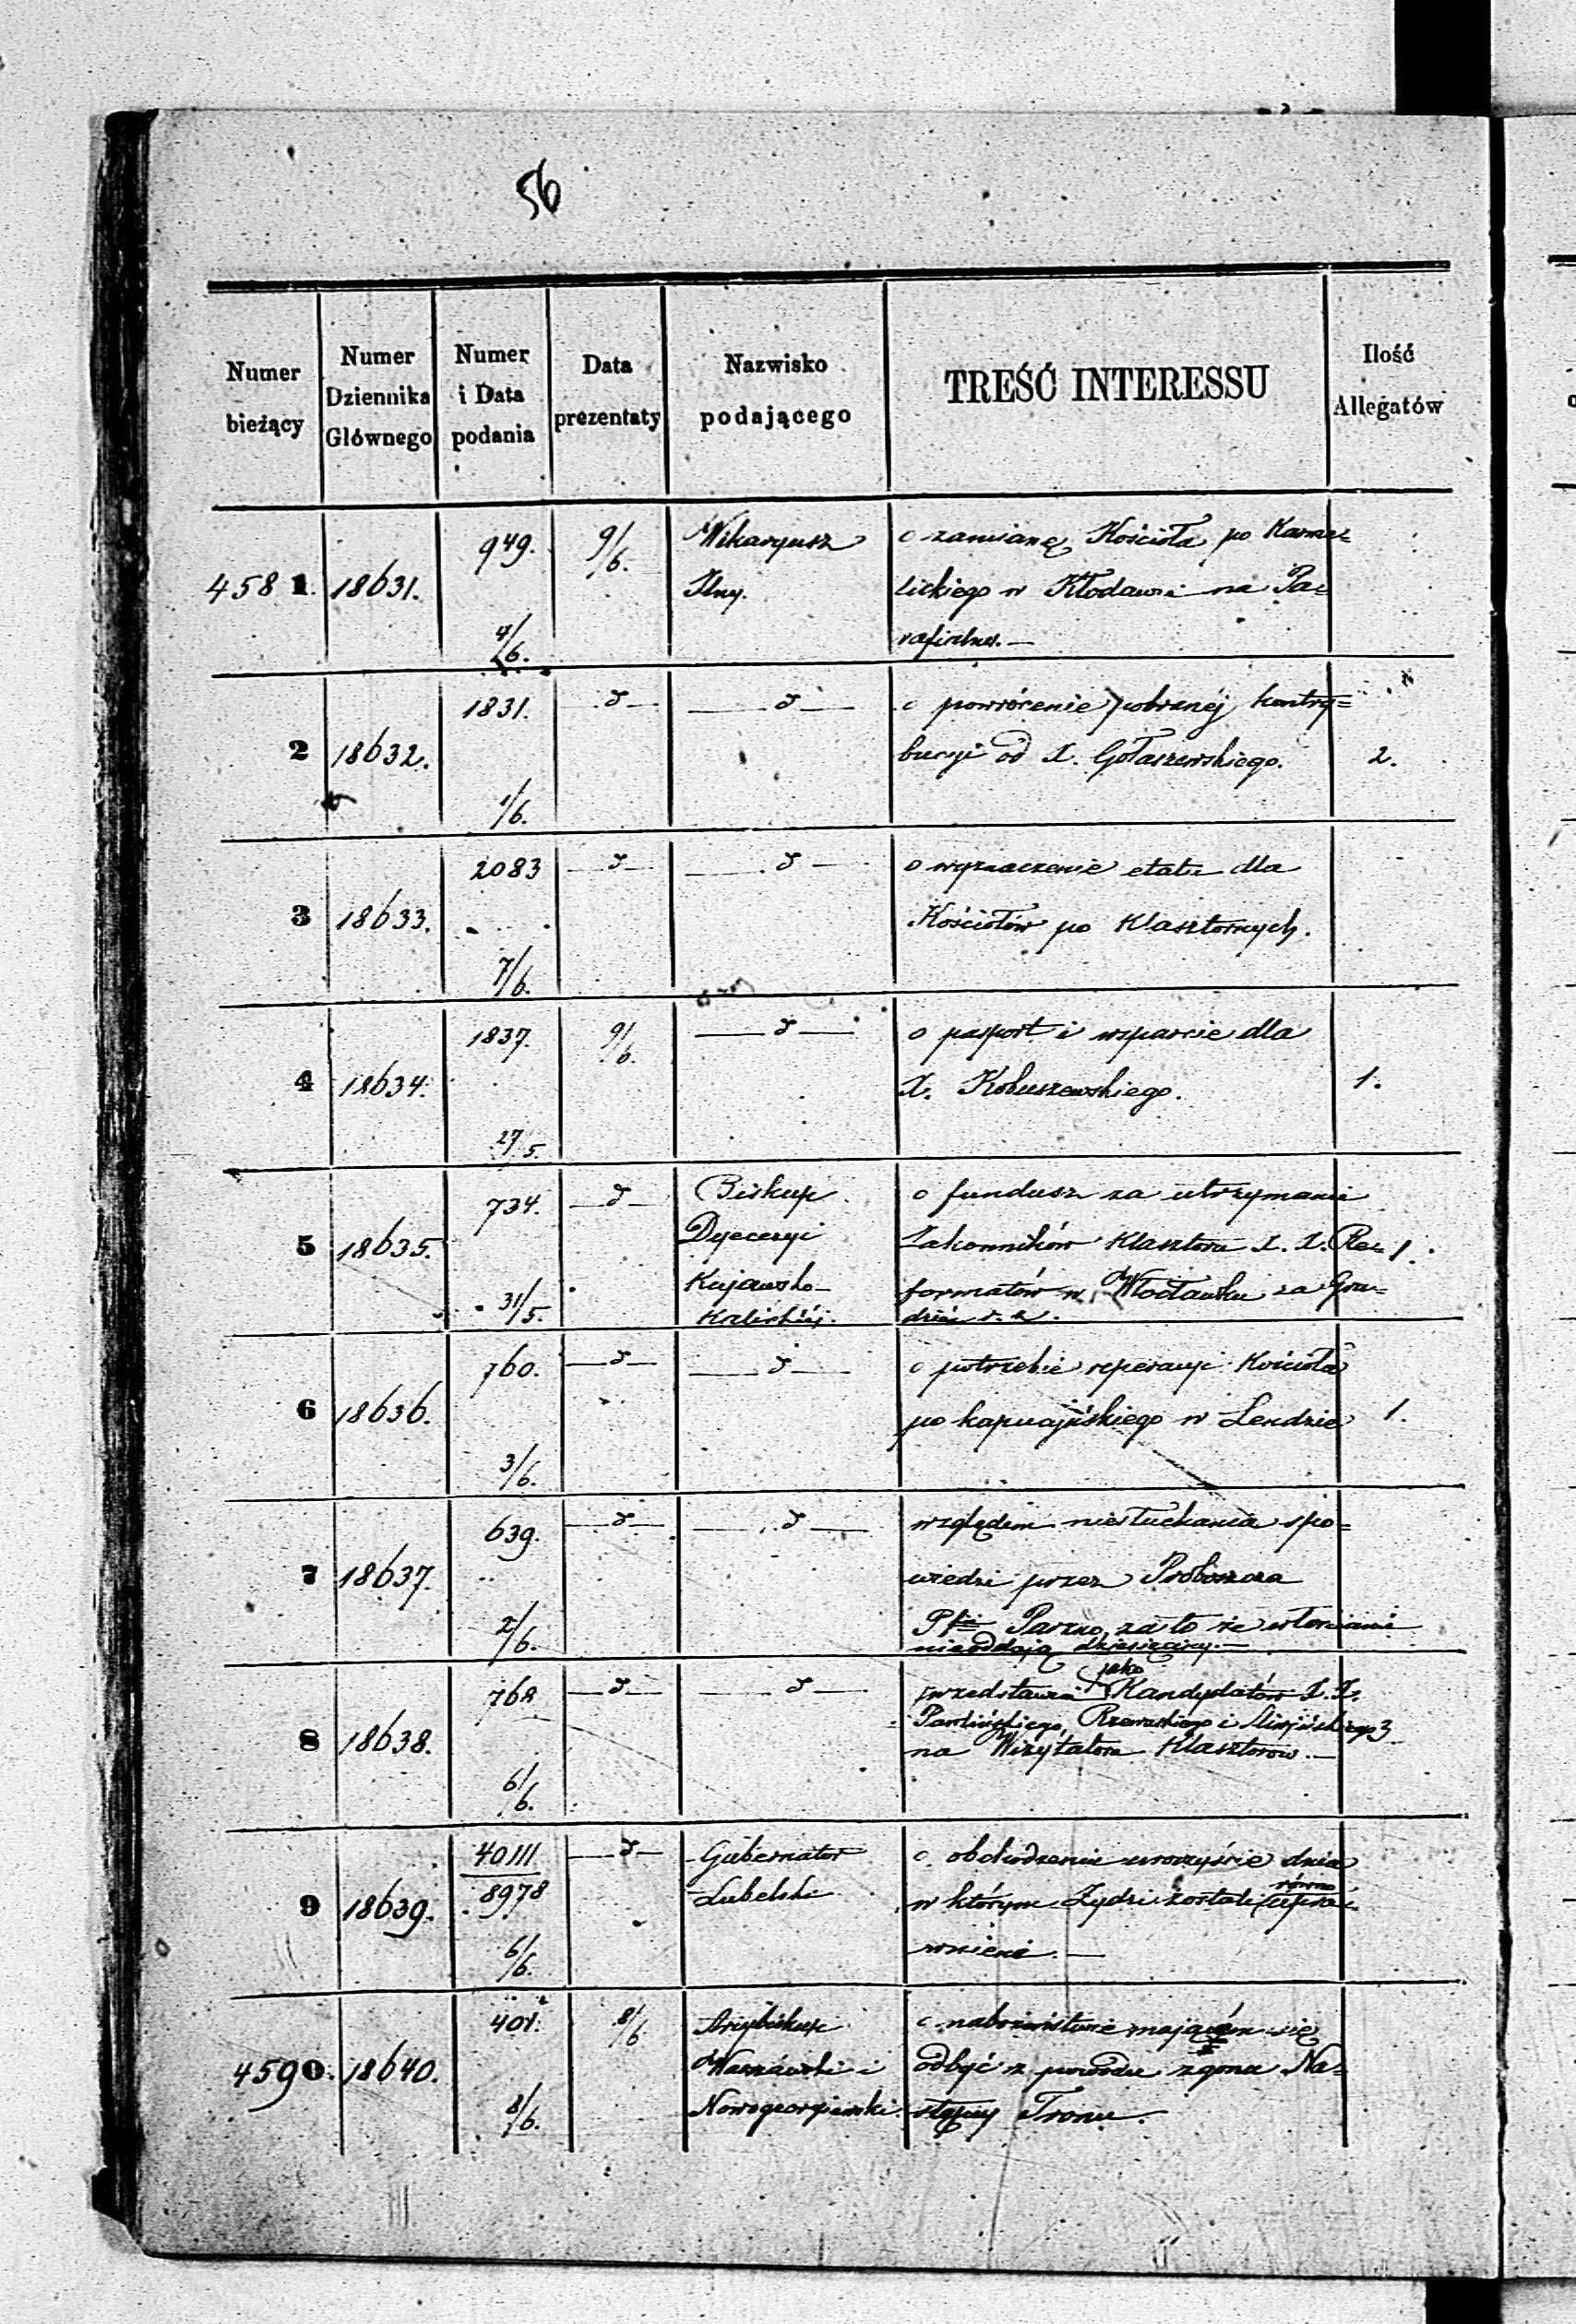 56
Numer bieżący | Numer Dziennika Głównego | Numer i Data podania | Data prezentaty | Nazwisko podającego | TREŚĆ INTERESSU | Ilość Allegatów
4581. | 18631. | 949. 4/6. | 9/6. | Wikaryusz
o zamianę Kościoła po Karme=
lickiego w Kłodawie na Pa=
rafialny.—
2 | 18632. | 1831. 1/6. | —d— | —d—
o powrócenie pobranéj kontry=
bucyi od X. Gołaszewskiego. | 2.
3 | 18633. | 2083 7/6. | —d— | —d—
o wyznaczenie etatu dla
Kościołów po Klasztornych.
4 | 18634. | 1837. 27/5. | 9/6. | —d—
o pasport i wsparcie dla
X. Kobuszewskiego. | 1.
5 | 18635. | 734. 31/5. | —d— | Biskup Dyecezyi Kujawsko- Kaliskiéj.
o fundusz za utrzymanie
Zakonników Klasztoru X. X. Re= | 1.
formatów w Włocławku za Gru=
dzień r. z.
6 | 18636. | 760. 3/6. | —d— | —d—
o potrzebie reperacyi Kościoła
po kapucyńskiego w Lendzie | 1.
7 | 18637. | 639. 2/6. | —d— | —d—
względem niesłuchania spo=
wiedzi przez Proboszcza
Pfii Parzno, za to że włościanie
nieoddają dziesięciny.—
8 | 18638. | 768 6/6. | —d— | —d—
jako
przedstawia Kandydatów X. X.
Rzewuskiego i | 3
na Wizytatora Klasztorów.—
9 | 18639. | 40111 8978 6/6. | —d— | Gubernator Lubelski
o obchodzenie uroczyście dnia
równo
w którym Żydzi zostali upra=
wnieni.—
4590. | 18640. | 401. 8/6. | 8/6 | Arcybiskup Warszawski i Nowogeorgiewski
o nabożeństwie mającém się
odbyć z powodu zgonu Na=
stępcy Tronu.